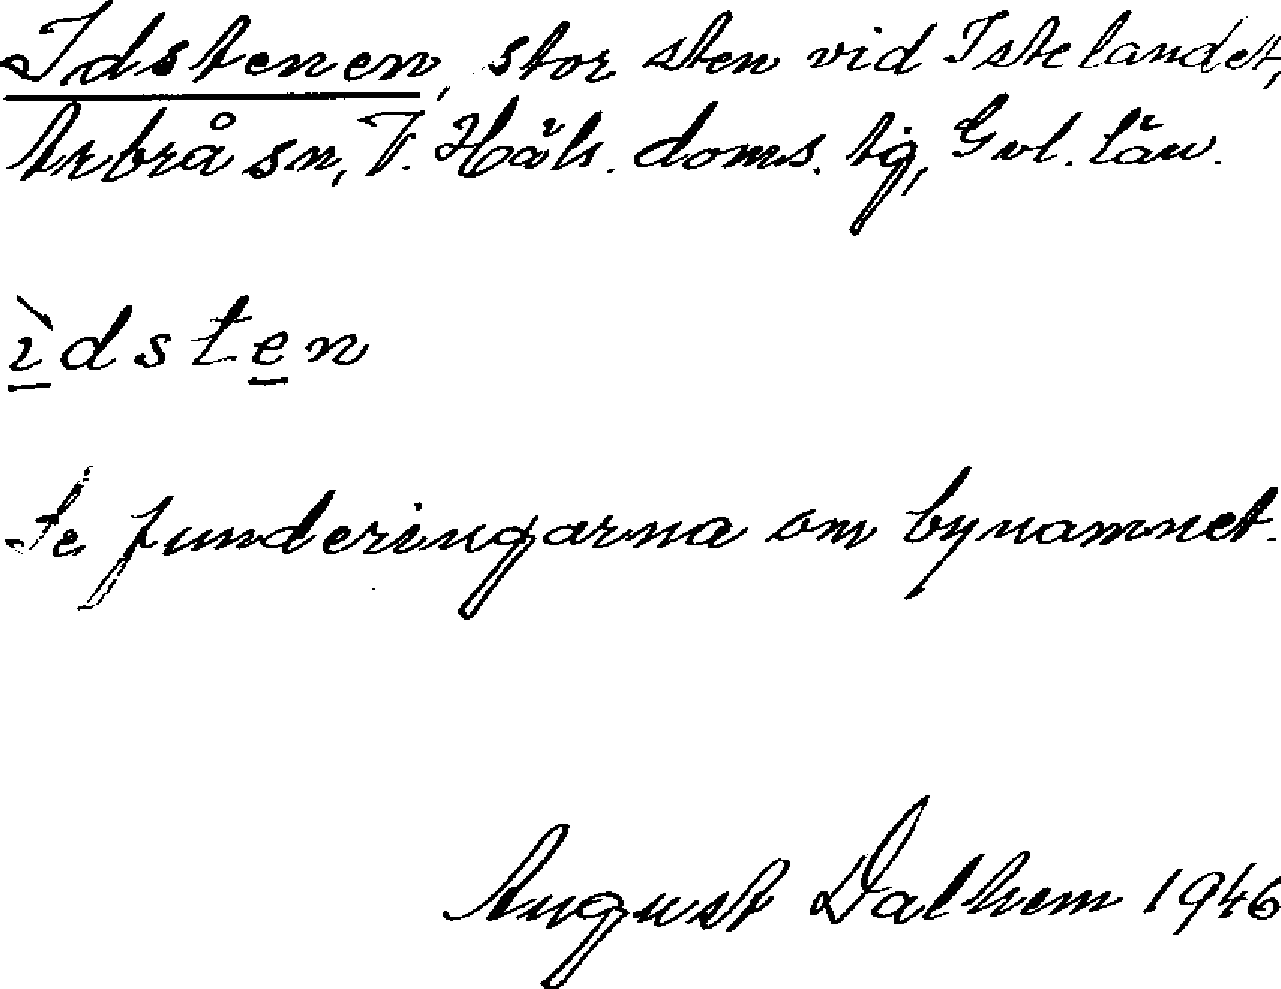 Idstenen, stor sten vid Istelandet,
Arbrå sn, V. Häls. doms. tg, Gvl. län.
ìdsten
Se funderingarna om bynamnet.
August Dalhem 1946